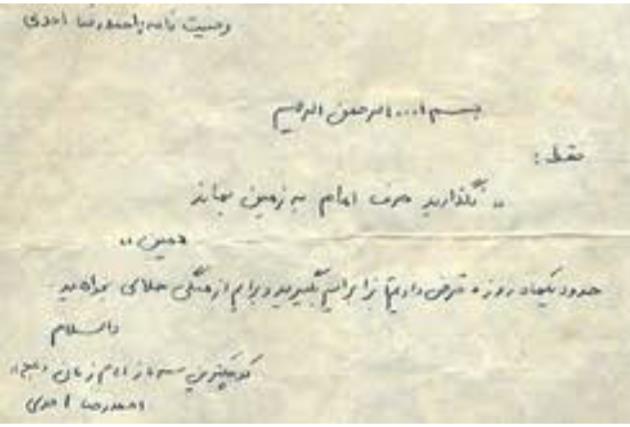 وصیت نامه احمدرضا احدی
بسم ا... الرحمن الرحیم
فقط:
«نگذارید حرف امام به زمین بماند
همین»
حدود یکماه روزه قرض دارم تا برایم بگیرید و برایم از همگی حلالی بخواهید
والسلام
کوچکترین سرباز امام زمان (عج)
احمدرضا احدی